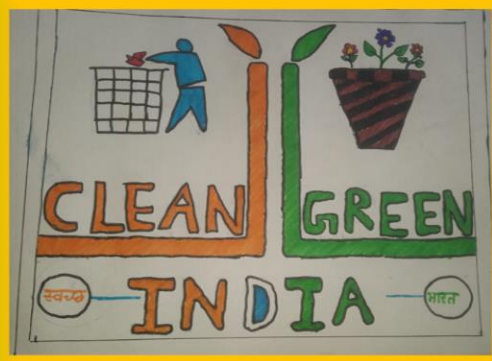 CLEAN GREEN
स्वच्छ INDIA भारत